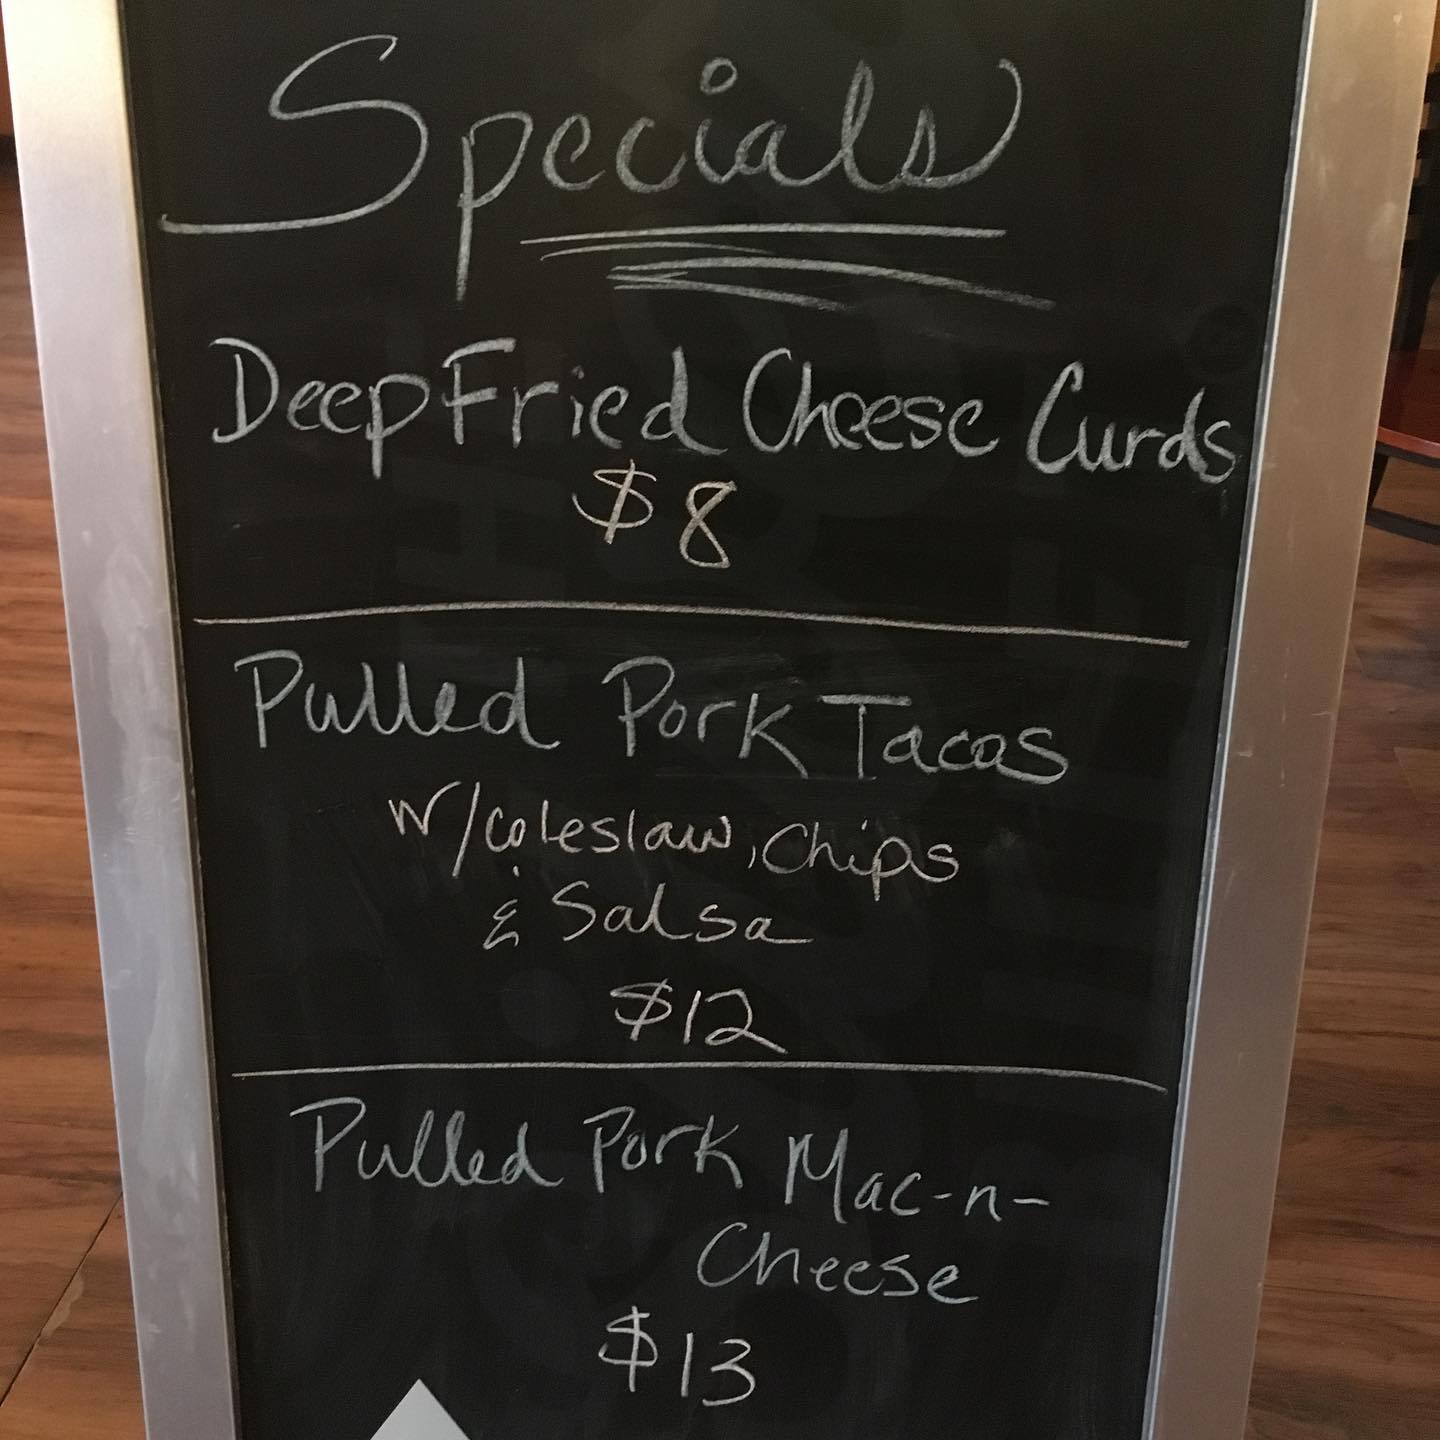 Specials
Deep Fried Cheese Curds
$8
Pulled Pork Tacos
w/coleslaw, chips
& Salsa
$12
Pulled Pork Mac-n-
Cheese
$13